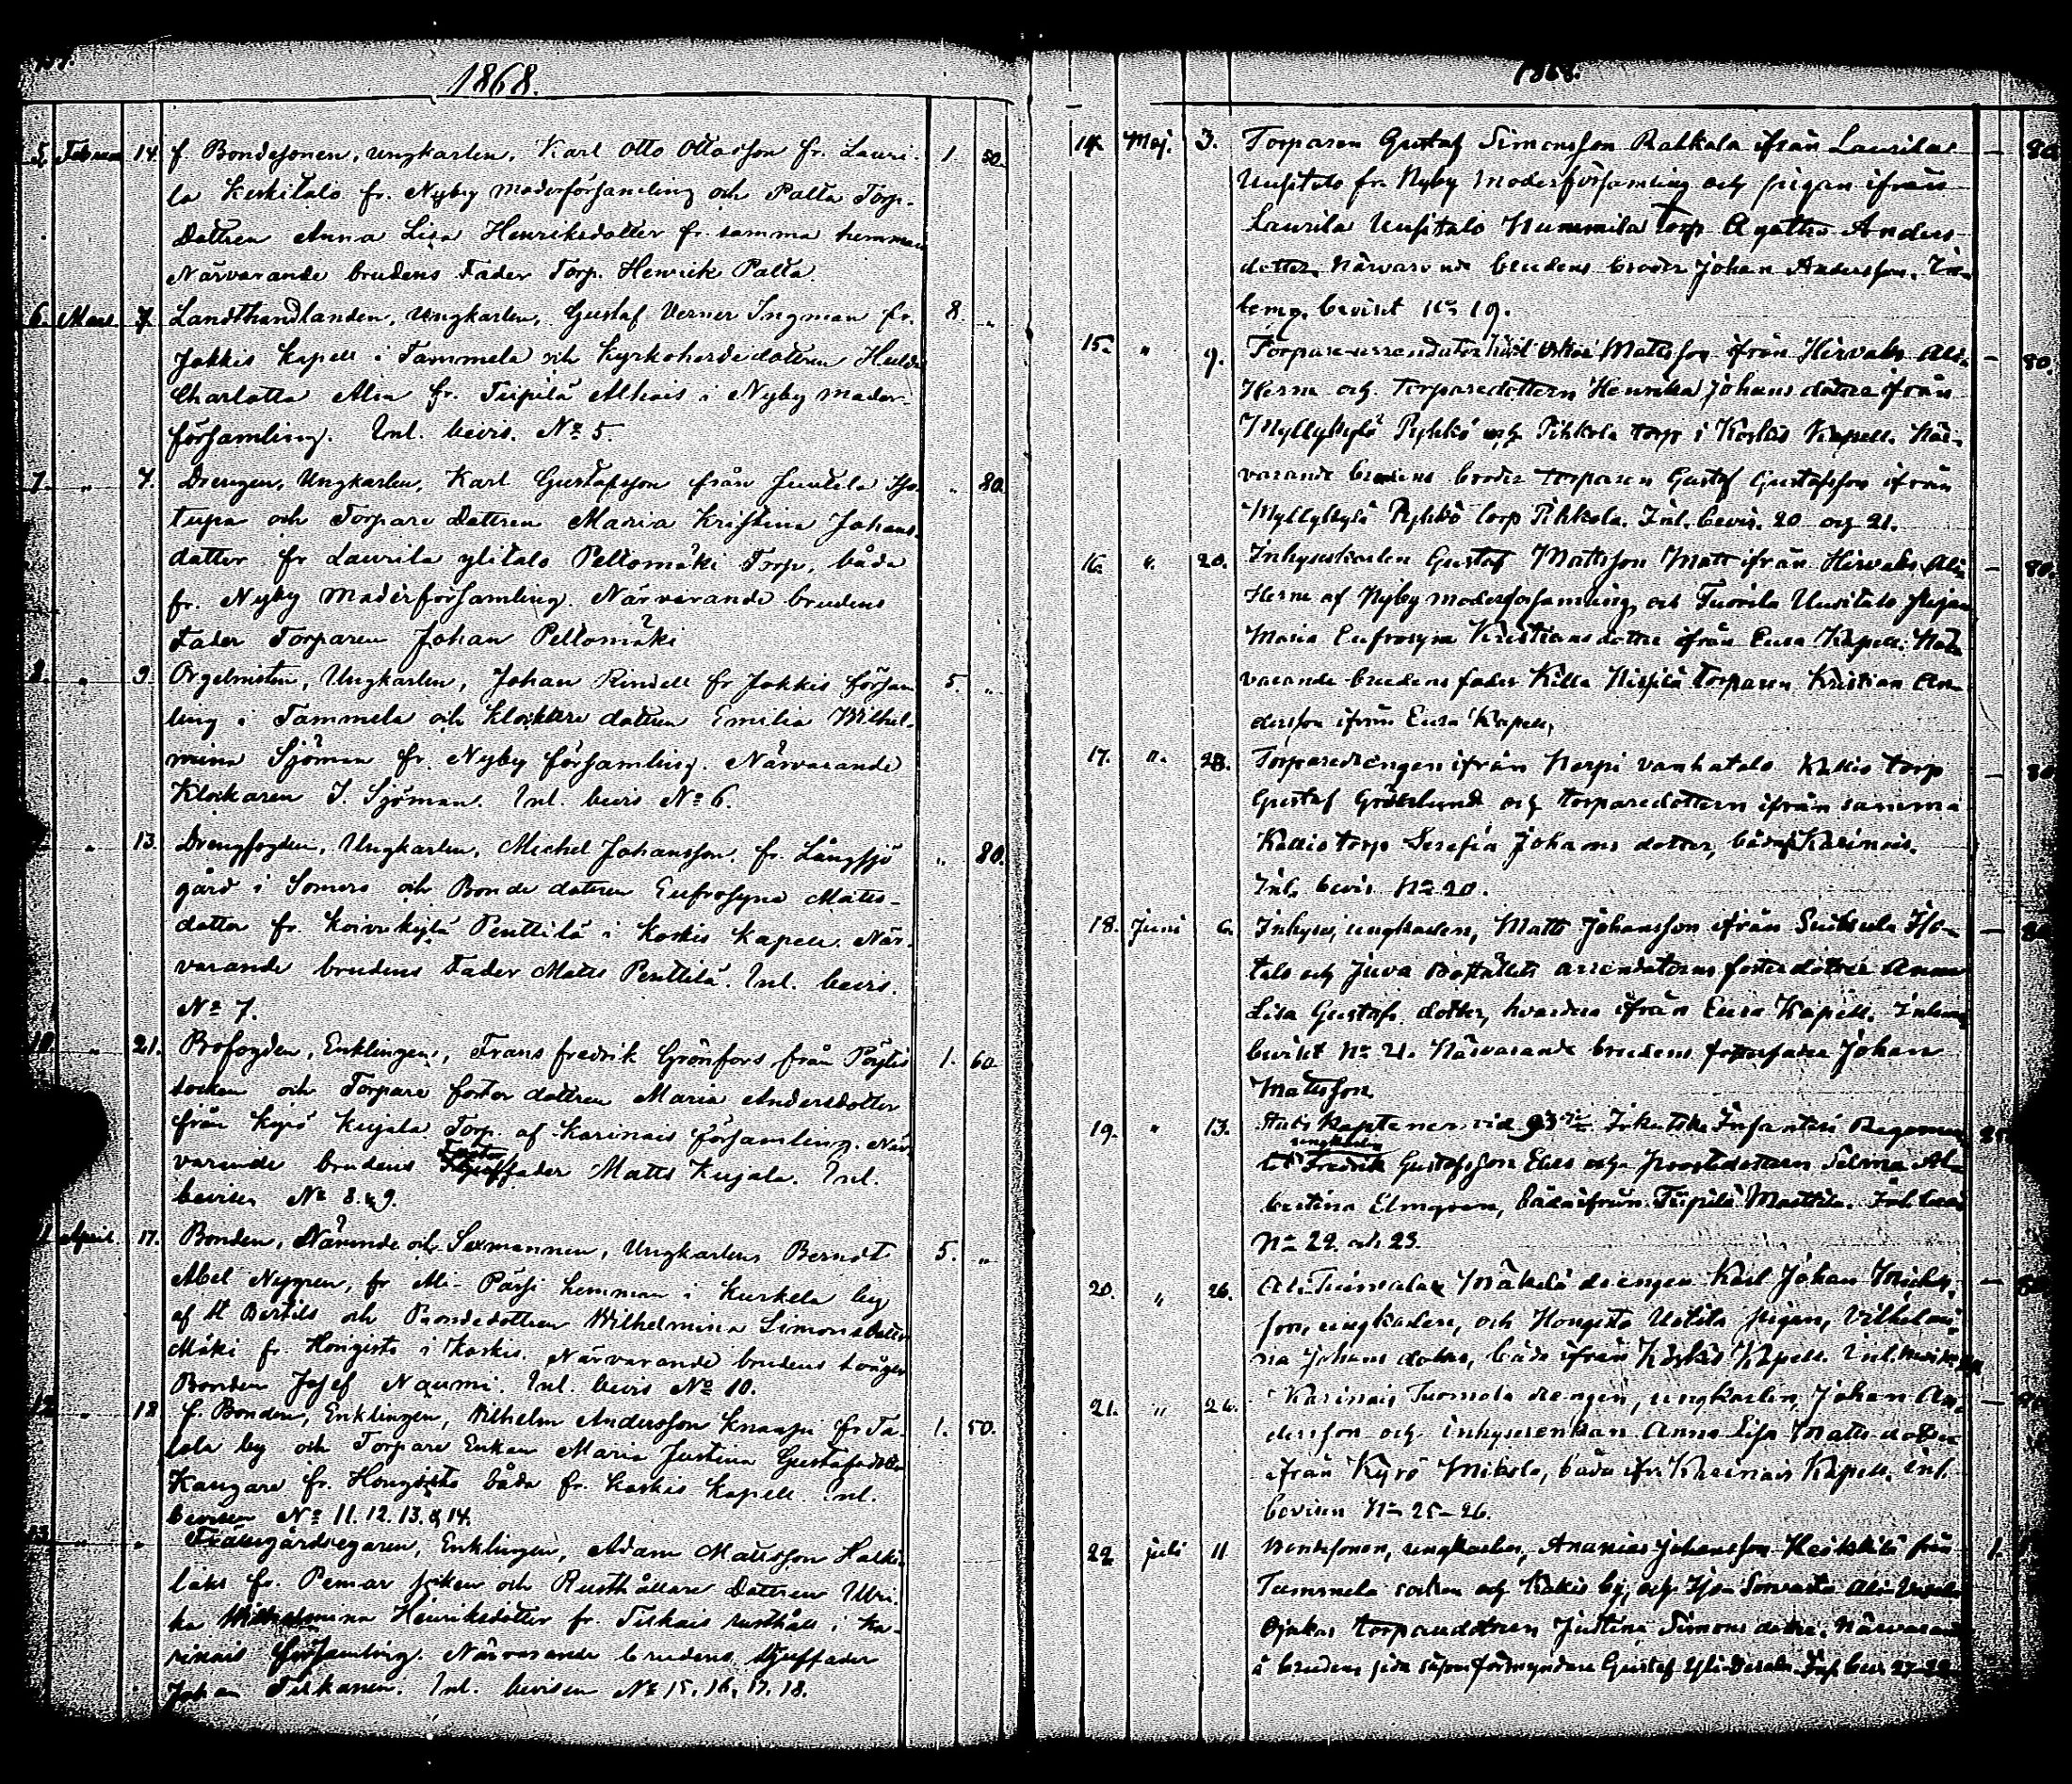 1868.
5. Febru 14. f. Bondesonen, ungkarlen, Karl Otto Ottosson fr. Lauri- 1. 50.
la Keskitalo fr. Nyby moderförsamling och Palta Torp-
Dottren Anna Lisa Henriksdotter fr. samma hemman
Närvarande brudens Fader Torp. Henrik Palta.
6. Mars 7. Landthandlanden, Ungkarlen, Gustaf Verner Ingman fr. 8. „
Jokkis Kapell i Tammela och Kyrkoherdedottren Hulda
Charlotta Alm fr. Tiipilä Alhais i Nyby moder-
församling. Inl. bevis. No 5.
7. „ 7. Drengen, Ungkarlen, Karl Gustafsson från Juntila Iso- „ 80.
tupa och Torpare Dottren Maria Kristina Johans-
dotter fr Laurila ylitalo Peltomäki Torp, båda
fr. Nyby Moderförsamling. Närvarande brudens
Fader Torparen Johan Peltomäki
8. „ 9. Orgelnisten, Ungkarlen, Johan Rindell fr Jokkis försam 5. „
ling i Tammela och Klockare dottren Emilia Wilhel-
mina Sjöman fr. Nyby församling. Närvarande
Klockaren J. Sjöman. Inl. bevis No 6.
„ 13. Drengfogden, Ungkarlen, Michel Johansson, fr. Långsjö „ 80.
gård i Somero och Bonde dottren Eufrosyna Matts-
dotter fr. Koivukylä Penttilä i Koskis Kapell. När-
varande brudens Fader Matts Penttilä. Inl. bevis.
No 7.
10. „ 21. Brofogden, Enklingen, Frans fredrik Grönfors från Pöytis 1. 60.
socken och Torpare foster dottren Maria Andersdotter
från Kyrö Kujala Torp af Karinais församling. När
varande brudens Foster fader Matts Kujala. Inl.
bevisen No 8. & 9.
11. April 17. Bonden, Nämnde och Sexmannen, Ungkarlen Berndt 5. „
Abel Nygren, fr Ali- Pärsi hemman i Kurkela by
af St Bertils och Bondedottren Wilhelmina Simonsdotter
Mäki fr. Hongisto i Koskis. Närvarande brudens svåger
Bonden Josef Naumi. Inl. bevis No 10.
12. „ 18 f. Bonden, Enklingen, Wilhelm Andersson Knaapi fr Ta- 1. 50.
tala by och Torpare Enkan Maria Justina Gustafsdotter
Kangare fr. Hongisto båda fr. Koskis Kapell. Inl.
bevisen No 11. 12. 13. & 14.
13. „ „ Frälsegårdsegaren, Enklingen, Adam Mattsson Halki-
laks fr. Pemar socken och Rusthållare Dottren Ulri-
ka Wilhelmina Henriksdotter fr. Tiskais rusthåll i Ka-
rinais församling. Närvarande brudens Styffader
Johan Tiskanen. Inl. bevisen No 15. 16. 17. 18.
1868.
14. Maj. 3. Torparen Gustaf Simonsson Rahkala ifrån Laurila — 80.
Uusitalo fr. Nyby Moderförsamling och pigan ifrån
Laurila Uusitalo Nummila Torp Agatha Anders
dotter. Närvarande brudens broder Johan Andersson. In-
temg. beviset No 19.
15. „ 9. Torpare-arrendator Karl Oskar Mattsson ifrån Hirvalo Ali- — 80.
Herne och Torparedottern Henrika Johans dotter ifrån
Myllykylä Pyhkö och Pihkola torp i Koskis Kapell. När-
varande brudens broder torparen Gustaf Gustafsson ifrån
Myllykylä Pyhkö torp Pihkola. Inl. bevis. 20 och 21.
16. „ 20. Inhyseskarlen Gustaf Mattsson Matt ifrån Hirvalo Ali — 80.
Herne af Nyby moderförsamling och Tuorila Uusitalo pigan
Maria Eufrosyna Kristians dotter ifrån Eura Kapell. När
varande brudens fader Killa Torparen Kristian An-
dersson ifrån Eura Kapell.
17. „ 28. Torparedrengen ifrån Norpi vanhatalo Kallio torp — 80
Gustaf Grönlund och torparedottern ifrån samma
Kallio torp Serafia Johans dotter, båda Karinais.
Inl. bevis No 20.
18. Juni 6. Inhyses, ungkarlen, Matts Johansson ifrån Suksela Iso- — 80
talo och Juva Boställets arrendatorns fosterdotter Anna
Lisa Gustafs dotter, hvardera ifrån Eura Kapell. Intem
beviset No 21. Närvarande brudens fosterfader Johan
Mattsson.
19. „ 13. Stabs Kaptenen vid 93dje Irkutska Infanteri Regemen
ungkarlen
tet Fredrik Gustafsson Elvs och prostdottern Selma Al-
bertina Elmgren, båda ifrån Tiipilä Marttila. Inl. bevis
No 22. och 23.
20. „ 26. Ali-Tuimala Mäkelä drengen Karl Johan Michels-
son, ungkarlen, och Hongisto Uotila pigan, Vilhelmi-
na Johans dotter, båda ifrån Koskis Kapell. Inl. beviset
21. „ 26. Karinais Tuomola drengen, ungkarlen, Johan An-
dersson och inhysesenkan Anna Lisa Matts dotter
ifrån Kyrö Mikola, båda ifr. Karinais Kapell. Inl.
bevisen No 25-26.
22 juli 11 Bondesonen, ungkarlen, Ananias Johansson Heikkilä från 1.
Tammela socken och Kakis by, och Isosorvasto Ali
Ojakas torparedottren Justina Simons dotter. Närvarand
å brudens sida såsom förmyndare Gustaf Yli- Inl. bev. 27-28